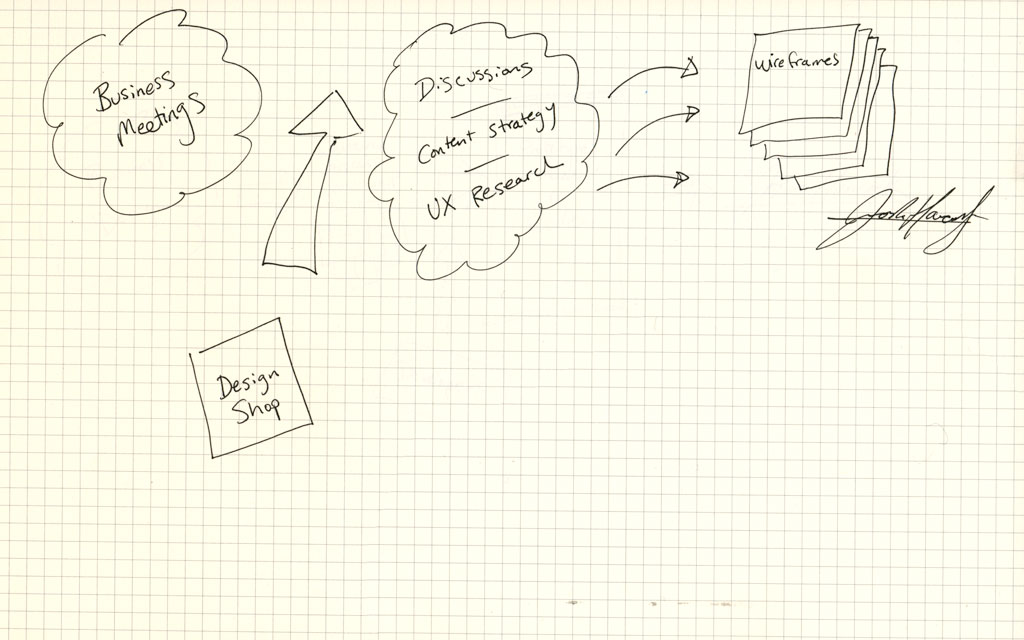 Business
Meetings
Discussions
Content Strategy
UX Research
Wireframes
Design
Shop